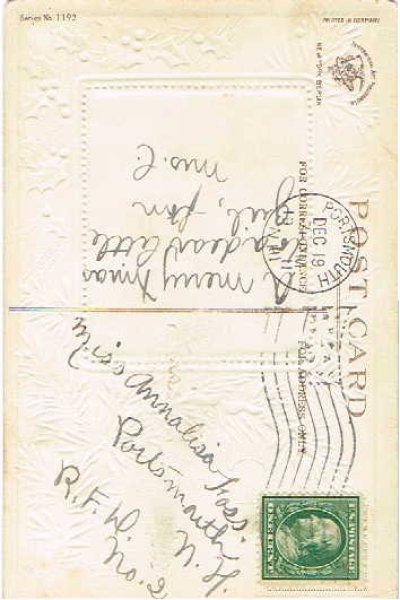 Series No. 1192
PRINTED IN GERMANY
INTERNATIONAL ART PUBLISHING CO
NEW YORK, BERLIN
POST CARD
FOR CORRESPONDENCE
FOR ADDRESS ONLY
PORTSMOUTH
DEC 19
11
A merry Xmas
to a dear little
girl, from
Mrs. C.
Miss Annalisa
Portsmouth
N. H.
R. F. D.
No. 2